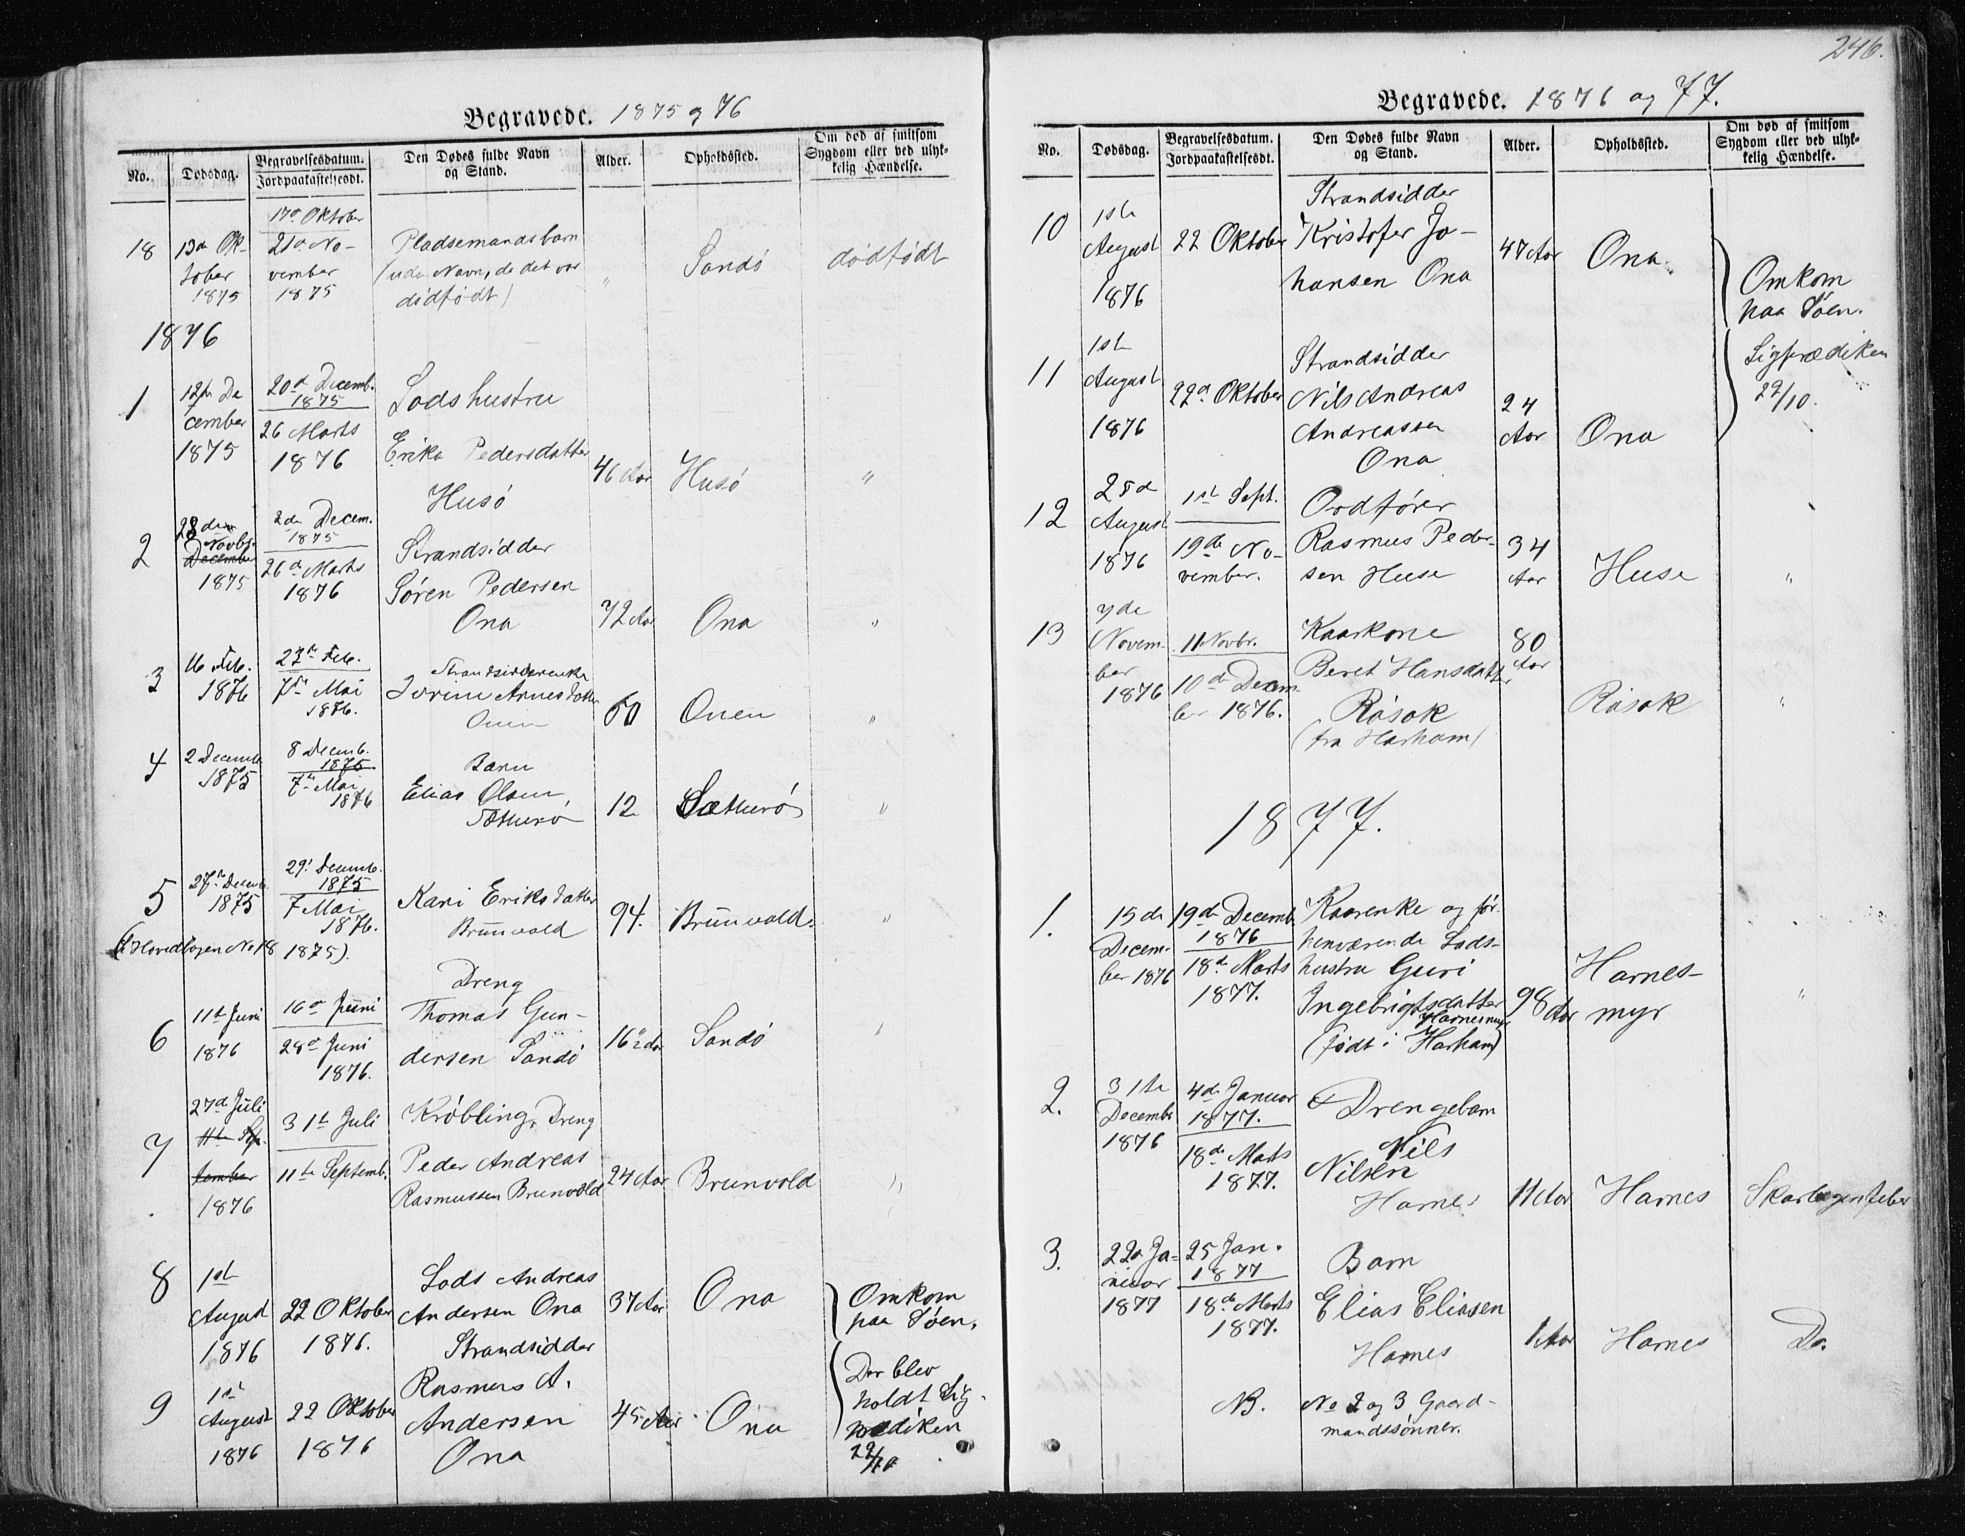 Begravede. 1875 og 76
No.
Dødsdag.
Begravelsesdatum.
Jordpaakastelsesdt.
Den Dødes fulde Navn
og Stand.
Alder.
Opholdssted.
Om død af smitsom
Sygdom eller ved ulyk-
kelig Hændelse.
18
13de Ok-
tober
1875
17de Oktober
21de No-
vember
1875
Pladsemandsbarn
(uden Navn, da det var
dødfødt)
"
Sandö
dødfødt
1876
1
12te De
cember
1875
20de Decemb.
1875
26 Marts
1876
Lods hustru
Erika Pedersdatter
Husö
46 Aar
Husö
"
2
28de
Novbr.
December
1875
2de Decem.
1875
26de Marts
1876
Strandsidder
Søren Pedersen
Ona
72 Aar
Ona
"
3
16 Feb.
1876
23de Feb.
7de Mai
1876.
Strandsidderenke
Jorine Arnesdatter
Onen
60
Onen
"
4
2 Decemb.
1875
8 Decemb.
1875
7de Mai
1876
Barn
Elias Olsen,
Sætherø
12
Sætherö
"
5
27de Decemb.
1875
29. Decemb.
1875
7 Mai
1876.
Kari Eriksdatter
Brunvold
94.
Brunvold.
"
(Hovedbogen No 18 1875).
6
11te Juni
1876
16de Juni
28de Juni
1876.
Dreng
Thomas Gun-
dersen Sandö
16 Aar
Sandö
"
7
27de Juli
11te Sep-
tember
1876
31te Juli
11te Septemb.
Krøbling, Dreng
Peder Andreas
Rasmussen Brunvold
24 Aar
Brunvold
"
8
1ste
August
1876
22 Oktober
1876.
Lods Andreas
Andersen Ona
37 Aar
Ona
Omkom
paa Søen.
9
1ste
August
1876
22 Oktober
1876
Strandsidder
Rasmus A.
Andersen
Ona
45 Aar
Ona
Der blev
holdt Lig-
prædiken
22/10
246.
Begravede. 1876 og 77.
No.
Dødsdag.
Begravelsesdatum.
Jordpaakastelsesdt.
Den Dødes fulde Navn
og Stand.
Alder.
Opholdssted.
Om død af smitsom
Sygdom eller ved ulyk-
kelig Hændelse.
10
1ste
August
1876
22 Oktober
Strandsidder
Kristofer Jo-
hansen Ona
47 Aar
Ona.
Omkom
paa Søen.
11
1ste
August
1876
22de Oktober
Strandsidder
Nils Andreas
Andreassen
Ona
24
Aar
Ona
Ligprædiken
22/10.
12
28de
August
1876
1ste Sept.
19de No-
vember.
Ordfører
Rasmus Peder-
sen Huse
34
Aar
Huse
"
13
7de
Novem-
ber
1876
11 Novbr.
10de Decem-
ber 1876.
Kaarkone
Beret Hansdatter
Røsok
(fra Harham)
80
Aar
Røsok
"
1877.
1.
15de
Decem-
ber 1876
19de Decemb.
1876
18de Marts
1877.
Kaarenke og for
henværende Lods-
hustru Guri
Ingebrigtsdatter
Harnesmyr
(født i Harham)
98 Aar
Harnes-
myr
"
2.
31te
Decembr
1876
4de Januar
1877.
18de Marts
1877.
Drengebarn
Nils
Nilsen
Harnes
11 Aar
Harnes
Skarlagensfeber
3.
22de Ja-
nuar
1877
25 Jan.
1877
18de Marts
1877.
Barn
Elias Eliasen
Harnes
1 Aar
Harnes
Do.
NB. No 2 og 3 Gaard-
mandssønner.